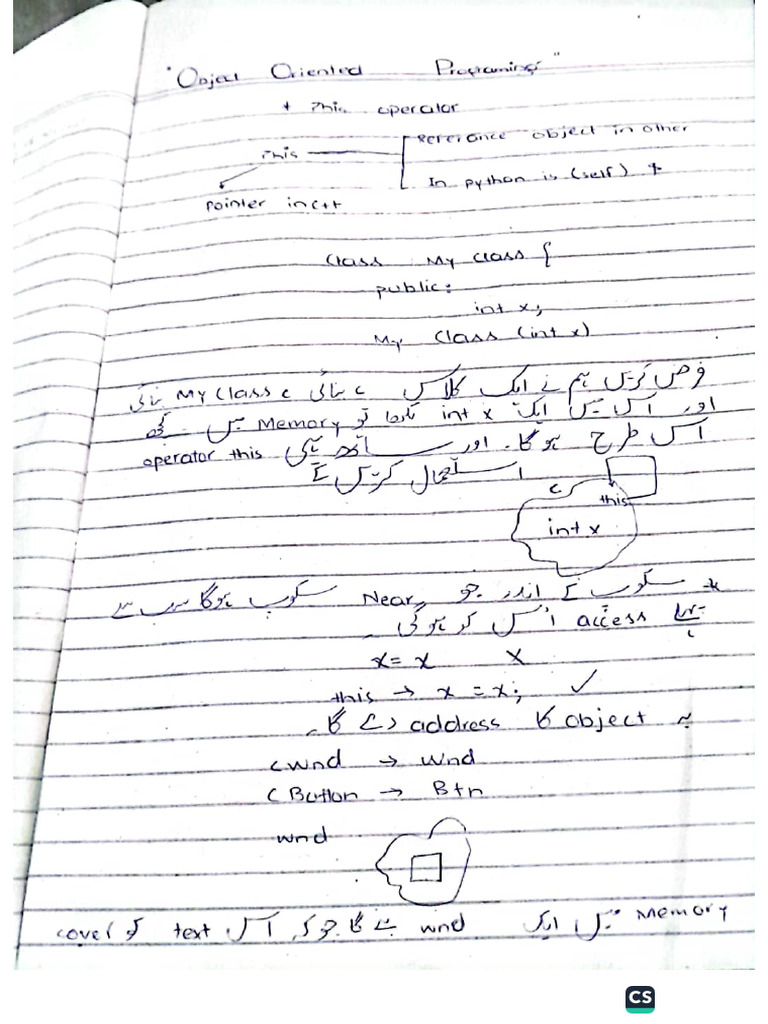 "Object Oriented Programing"
* This operator
This
Reference object in other
In python is (self) *
pointer in c++
Class My class {
public:
int x;
My Class (int x)
فرض کریں ہم نے ایک کلاس بنائی My Class c بنائی
اور اس میں ایک int x تو Memory میں کچھ
اس طرح ہو گا۔ اور ساتھ ہی operator this
استعمال کریں گے
c
this
int x
* سکوپ کے اندر جو Near سکوپ ہوگا سب سے
پہلے access اُس کو ہو گی۔
x = x X
this → x = x; ✓
یہ object کا address دے گا۔
cWnd → Wnd
CButton → Btn
wnd
Memory میں ایک wnd بنے گا جو کہ اس text کو cover
CS